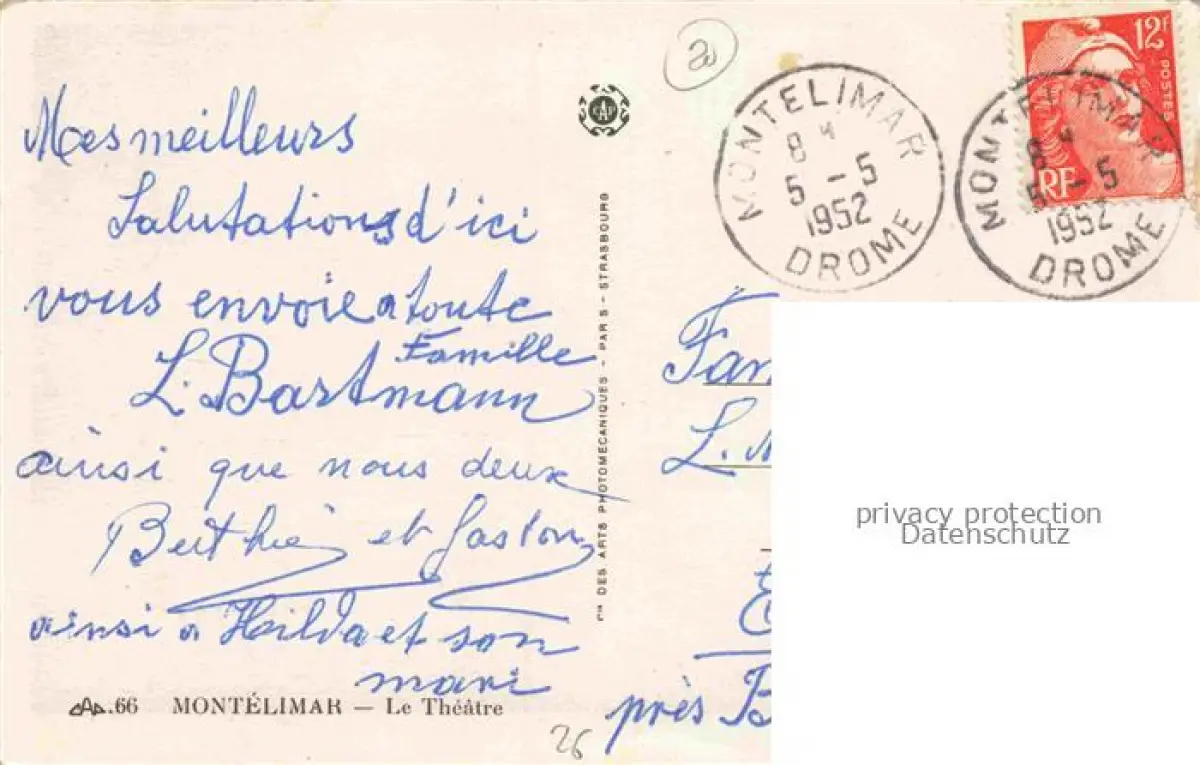 Mes meilleurs
Salutations d'ici
vous envoie a toute
Famille
L. Bastmann
ainsi que nous deux
Berthe et Gaston
ainsi a Hilda et son
mari
CAP.66 MONTÉLIMAR — Le Théâtre
26
20
CAP
Cie DES ARTS PHOTOMECANIQUES - PARIS - STRASBOURG
MONTELIMAR
8 H
5 - 5
1952
DROME
MONTELIMAR
8 H
5 - 5
1952
DROME
12F
POSTES
RF
Fam
L.
près B
privacy protection
Datenschutz